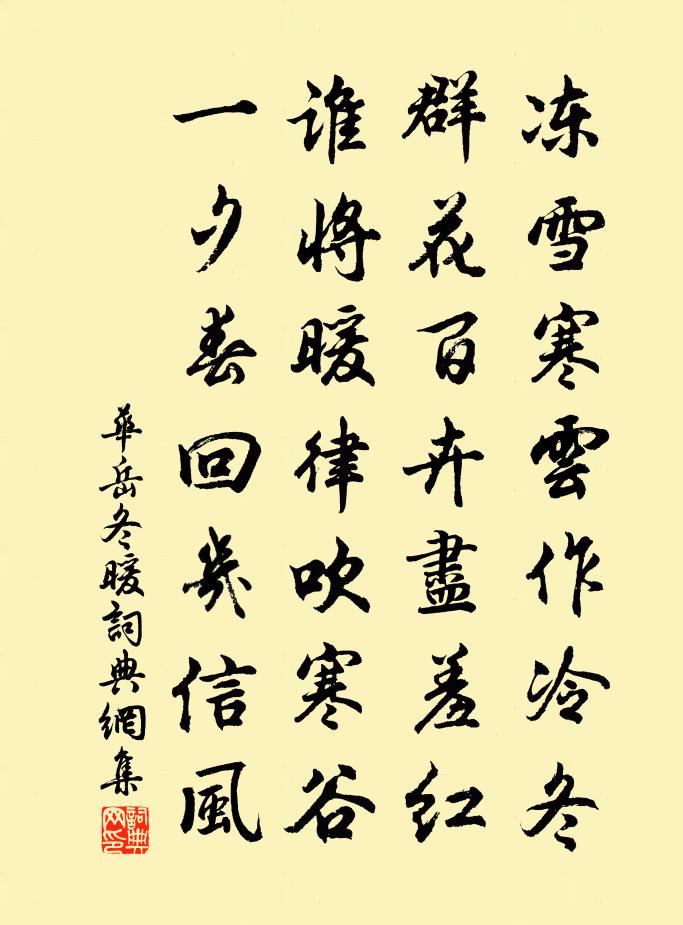 凍雪寒雲作冷冬
群花百卉盡羞紅
誰將暖律吹寒谷
一夕春回幾信風
華岳冬暖詞典網集
詞典網印